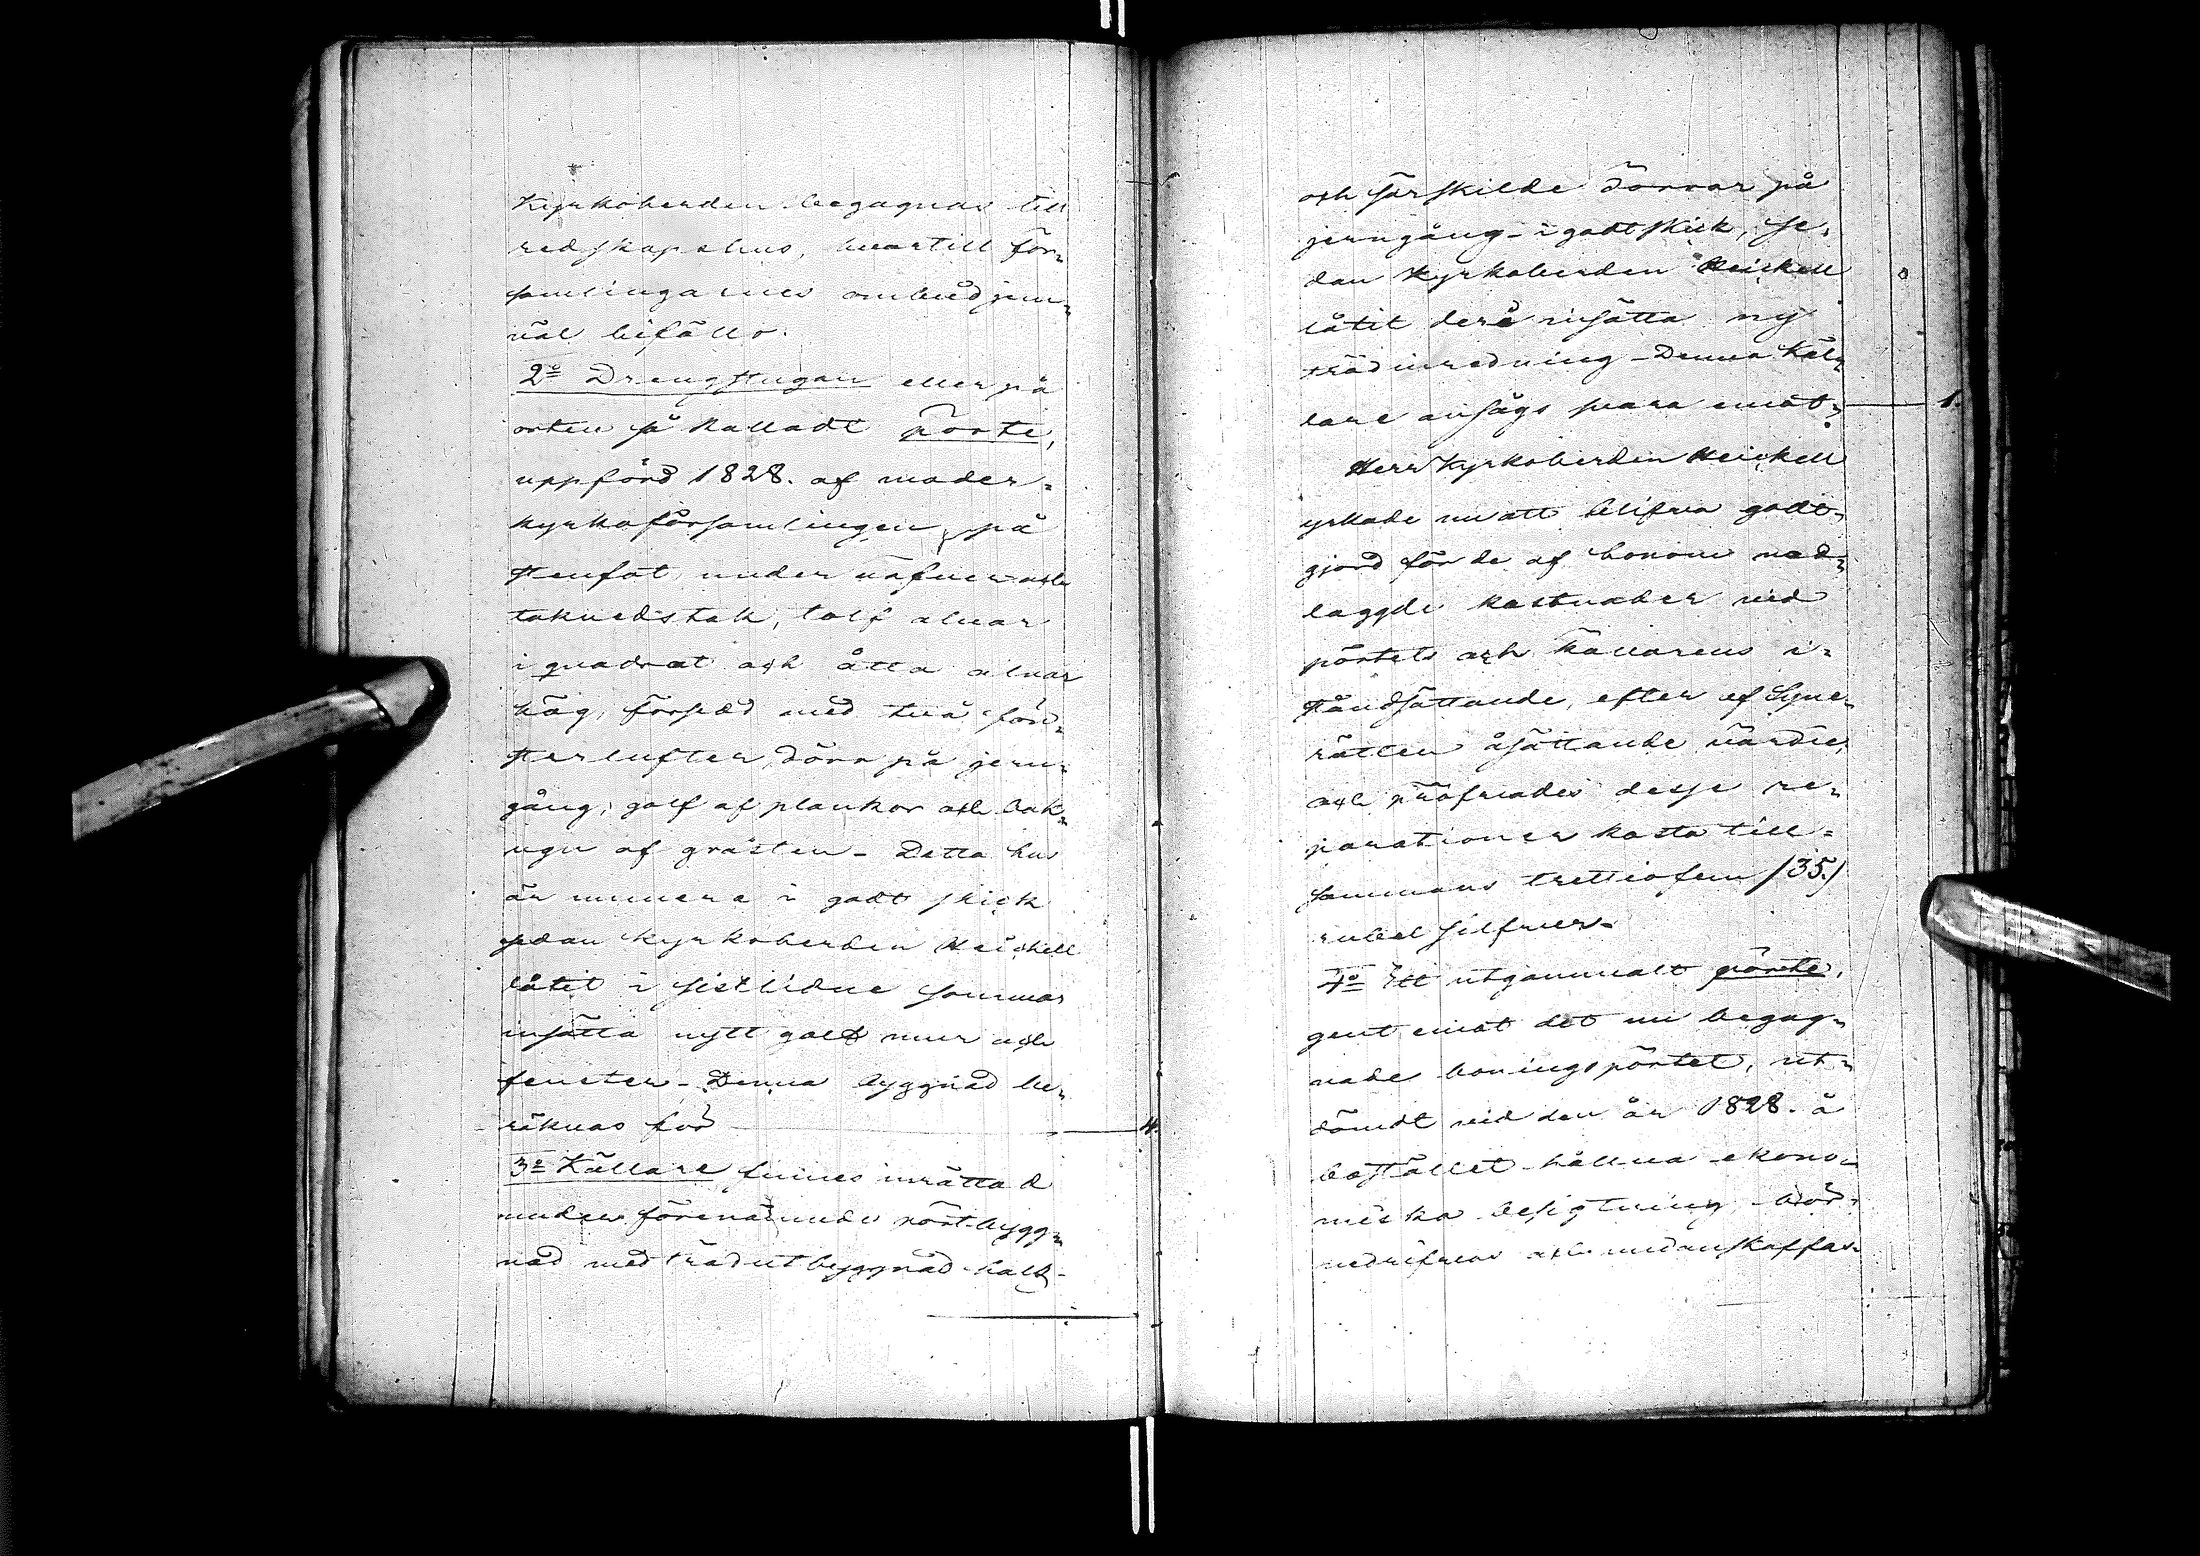 Kyrkoherden begagnas till
redskapshus, hvartill för-
samlingarnes ombud jem-
väl biföllo.
2o Drengstugan eller på
orten så kalladt pörte,
uppförd 1828. af moder-
kyrkoförsamlingen, på
stenfot, under näfver och
takvedstak, tolf alnar
i quadrat och åtta alnar
hög, försed med två fön-
sterlufter, dörr på jern-
gång, golf af plankor och bak-
ugn af gråsten - Detta hus
är numera i godt skick
sedan Kyrkoherden Heickell
låtit i sistlidne sommar
insätta nytt golf mur och
fenster - Denna byggnad be-
räknas för 4.
3o Källare finnes inrättad
under förenämnde pört-bygg-
nad med träd utbyggnad -
och särskilde dörrar på
jerngång - i godt skick, se-
dan Kyrkoherden Heickell
låtit derå insätta ny
trädinredning - Denna Käl-
lare ansågs svara emot. 1.
Herr Kyrkoherden Heickell
yrkade nu att blifva godt-
gjord för de af honom ned-
laggde kostnader vid
pörtets och källarens i-
ståndsättande, efter af Syne-
rätten åsättande värde,
och pröfvades desse re-
parationer kosta till-
sammans trettiofem /35./
rubel silfver.
4o Ett utgammalt pörte,
gent emot det nu begag-
nade boningspörtet, ut-
dömdt vid den år 1828. å
bostället hållna ekono-
miska besigtning, bör
nedrifvas och undanskaffas.